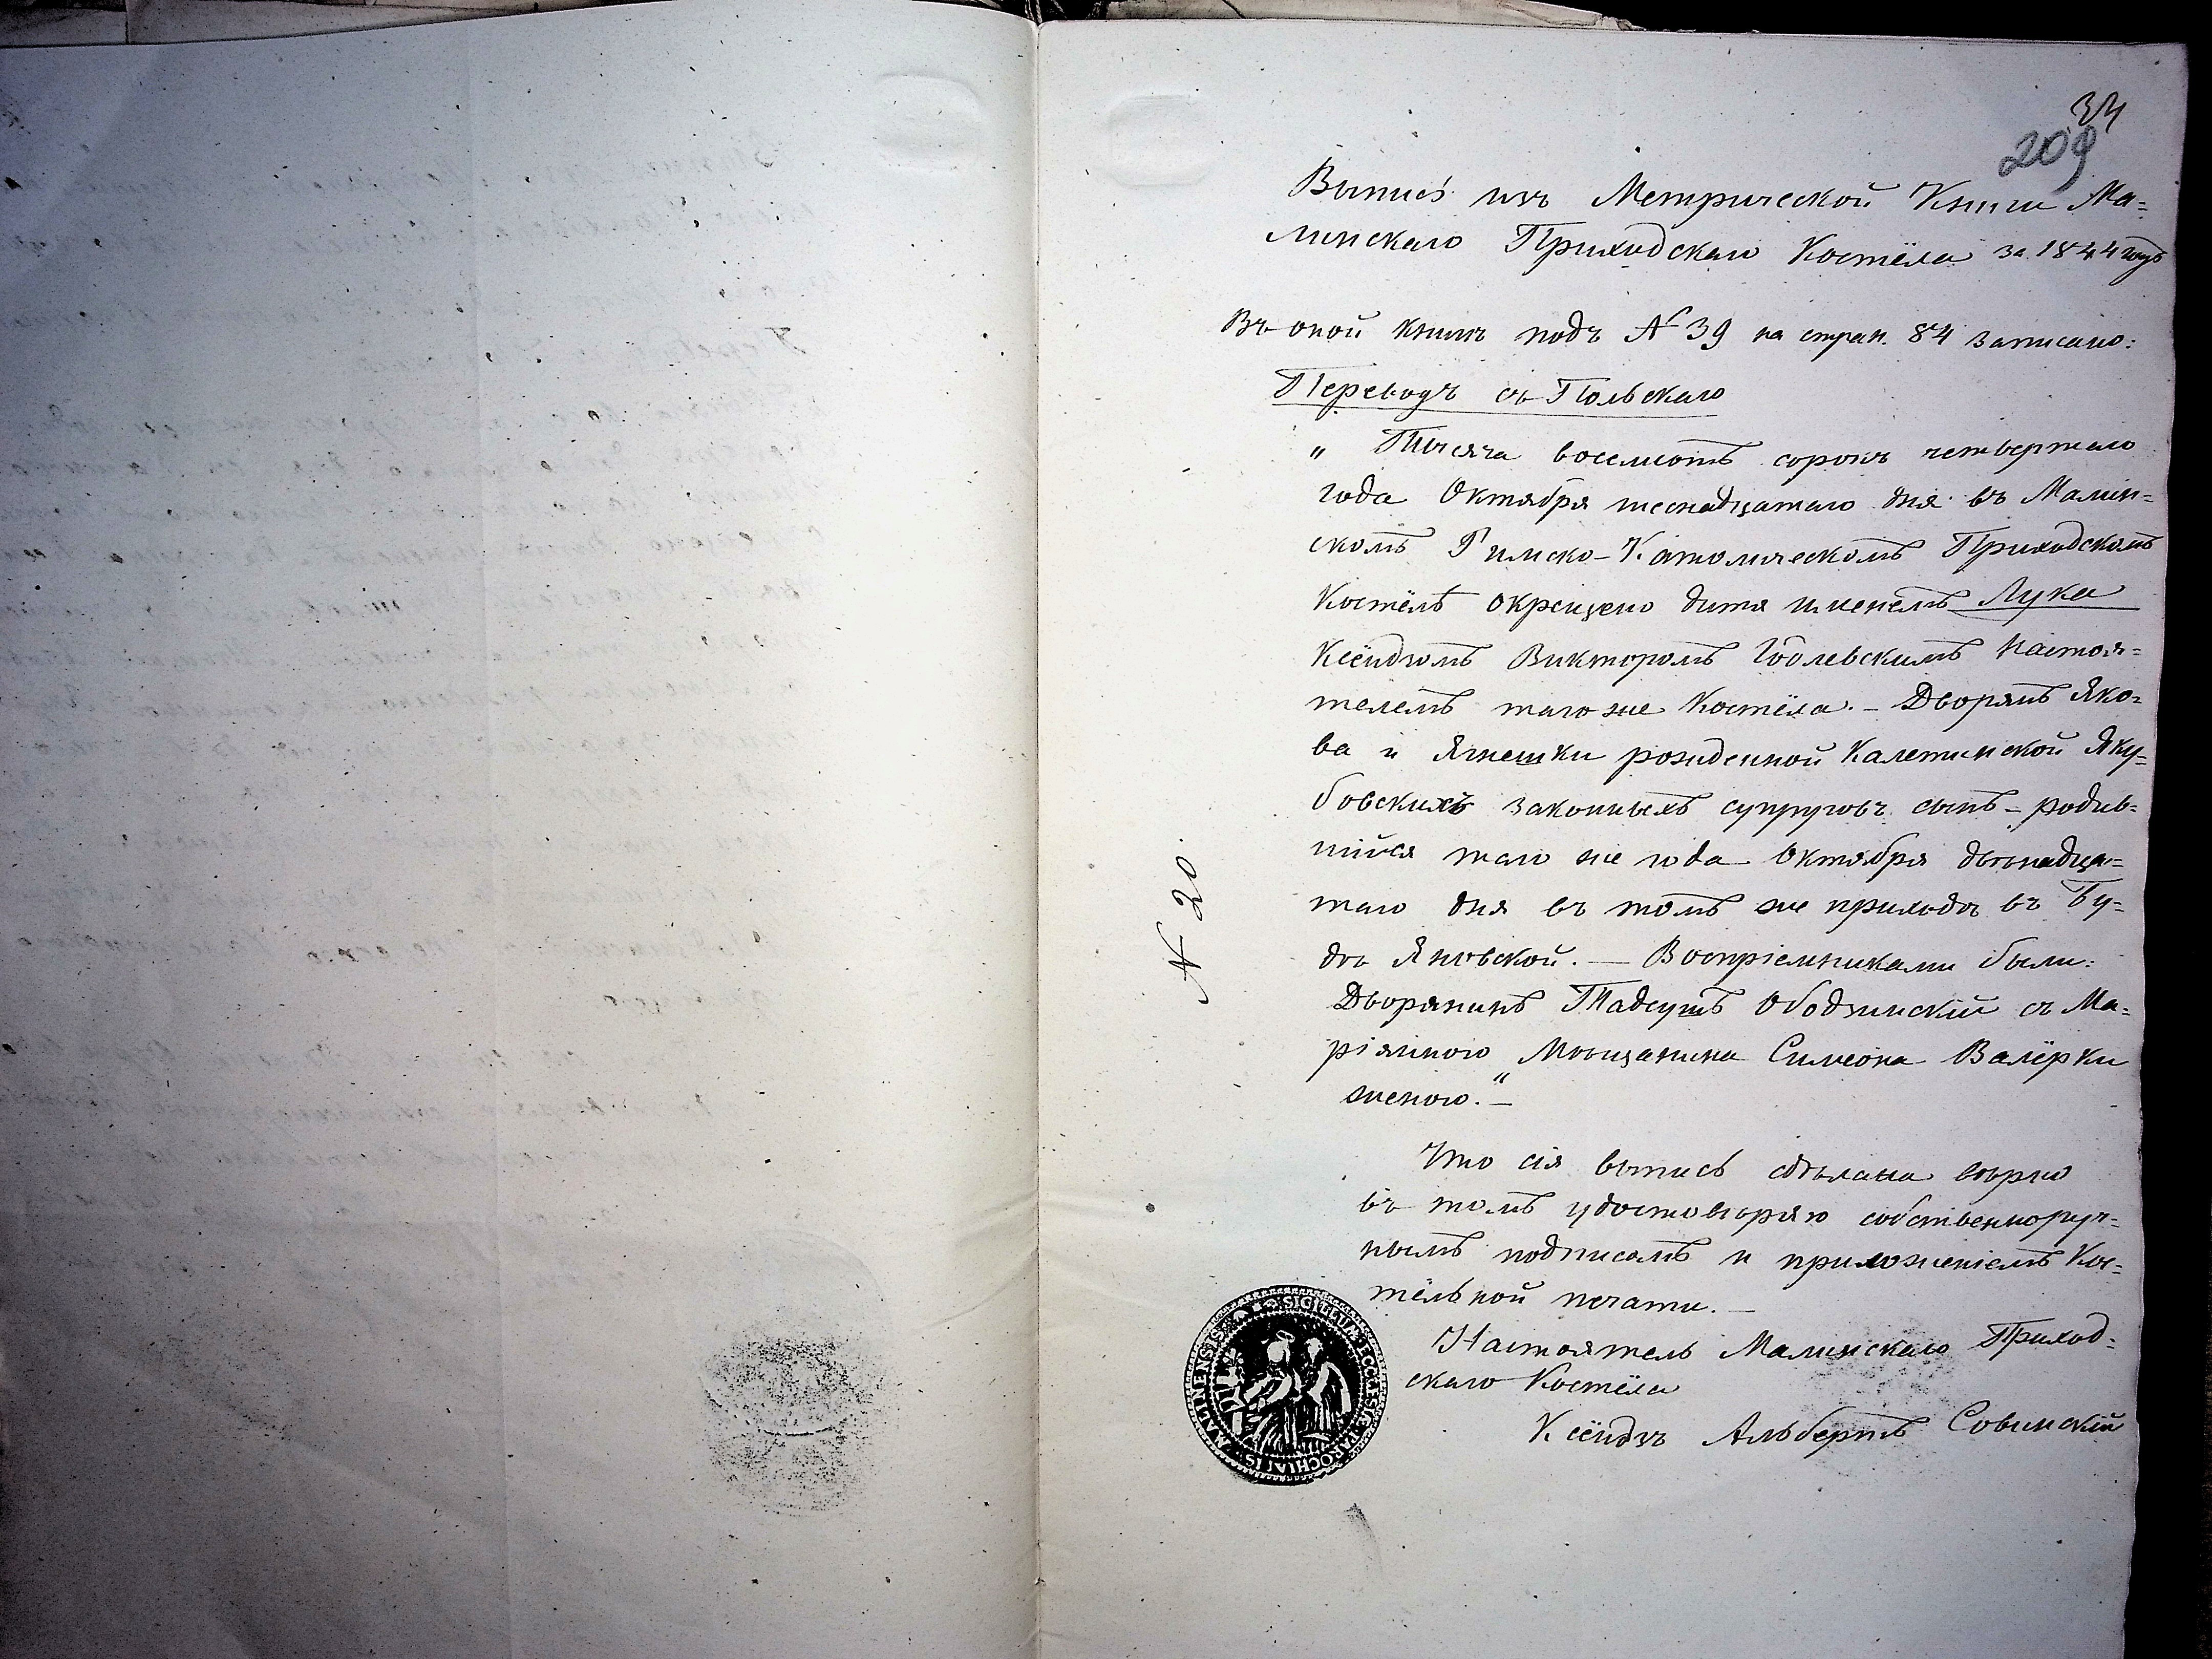 34
209
Выпись изъ Метрической Книги Ма=
линскаго Приходскаго Костёла за 1844 годъ
Въ оной книгѣ подъ № 39 на стран. 84 записано:
Переводъ съ Польскаго
„ Тысяча восемсотъ сорокъ четвертаго
года Октября шеснадцатаго дня въ Малин=
скомъ Римско-Католическомъ Приходскомъ
Костёлѣ окрещено дитя именемъ Лука
Ксёндзомъ Викторомъ Настоя=
телемъ тагоже Костёла. – Дворянъ Яко=
ва и Ягнешки рожденной Калетинской Яку=
бовскихъ законныхъ супруговъ сынъ – родив=
шійся таго же года Октября двѣнадца=
таго дня въ томъ же приходѣ въ Бу=
дѣ Яновской. — Воспріемниками были:
Дворянинъ Тадеушъ Ободзинскій съ Ма=
ріянною Мѣщанина Симеона Валёрки
женою.“ –
Что сія выпись сдѣлана вѣрно
въ томъ удостовѣряю собственноруч=
нымъ подписомъ и приложеніемъ Кос=
тёльной печати. –
Настоятель Малинскаго Приход=
скаго Костёла
Ксёндзъ Альбертъ Совинскій
№ 20.
SIGILLUM ECCLESIÆ PAROCHIALIS MALINENSIS